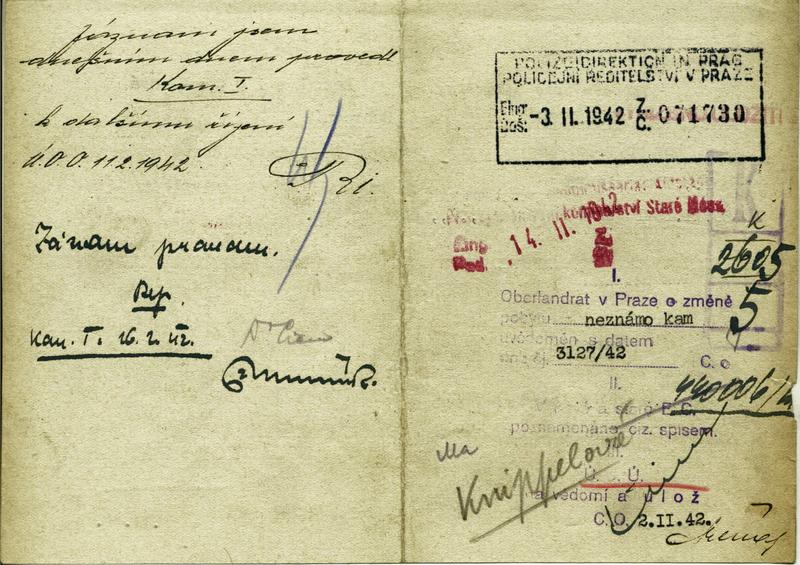 Záznam jsem
dnešním dnem provedl
Kam. I.
k dalšímu řízení
11 2. 1942
Záznam proveden.
Kan. I. 16. 2. 42.
POLIZEIDIREKTION IN PRAG
POLICEJNÍ ŘEDITELSTVÍ V PRAZE
Eing. Doš. -3. II. 1942 Z. Č. 071730
Staré Město
Eing. 14. II. 1942
K
K
2605
5
I.
Oberlandrat v Praze o změně
pobytu neznámo kam
uvědoměn s datem
3127/42 C. o
II.
a staré E.C.
poznamenáno ciz. spisem.
Ma
Knippelová
III.
Ú. Ú.
na vědomí a ulož
C. O. 2.II.42.